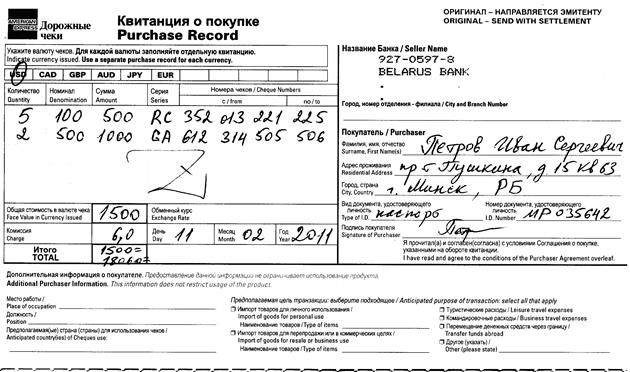 AMERICAN EXPRESS
Дорожные чеки
Квитанция о покупке
Purchase Record
ОРИГИНАЛ – НАПРАВЛЯЕТСЯ ЭМИТЕНТУ
ORIGINAL – SEND WITH SETTLEMENT
Укажите валюту чеков. Для каждой валюты заполняйте отдельную квитанцию.
Indicate currency issued. Use a separate purchase record for each currency.
USD CAD GBP AUD JPY EUR
Количество Quantity
Номинал Denomination
Сумма Amount
Серия Series
Номера чеков / Cheque Numbers
с / from
по / to
5 100 500 RC 352 013 221 225
2 500 1000 GA 612 314 505 506
Общая стоимость в валюте чека
Face Value in Currency Issued
1500
Обменный курс
Exchange Rate
Комиссия
Charge
6,0
День Day 11
Месяц Month 02
Год Year 2011
Итого
TOTAL
1500=
Название Банка / Seller Name
927-0597-8
BELARUS BANK
Город, номер отделения - филиала / City and Branch Number
Покупатель / Purchaser
Фамилия, имя, отчество
Surname, First Name(s)
Петров Иван Сергеевич
Адрес проживания
Residential Address
пр-т Пушкина, д 15 кв 63
Город, страна
City, Country
г. Минск, РБ
Вид документа, удостоверяющего личность
Type of I.D.
паспорт
Номер документа, удостоверяющего личность
I.D. Number
МР 035642
Подпись покупателя
Signature of Purchaser
Я прочитал(а) и согласен(согласна) с условиями Соглашения о покупке, указанными на обороте квитанции.
I have read and agree to the conditions of the Purchaser Agreement overleaf.
Дополнительная информация о покупателе. Предоставление данной информации не ограничивает использование продукта.
Additional Purchaser Information. This information does not restrict usage of the product.
Место работы /
Place of occupation
Должность /
Position
Предполагаемые(ые) страна (страны) для использования чеков /
Anticipated country(ies) of Cheques use:
Предполагаемая цель транзакции: выберите подходящее / Anticipated purpose of transaction: select all that apply
Импорт товаров для личного использования /
Import of goods for personal use
Наименование товаров / Type of items
Импорт товаров для перепродажи или в коммерческих целях /
Import of goods for resale or business use
Наименование товаров / Type of items
Туристические расходы / Leisure travel expenses
Командировочные расходы / Business travel expenses
Перемещение денежных средств через границу /
Transfer funds abroad
Другое (указать) /
Other (please state)